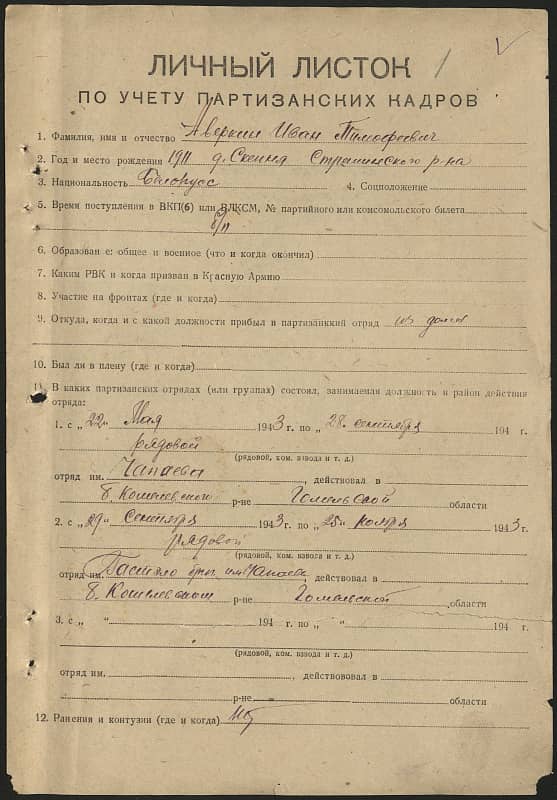 ЛИЧНЫЙ ЛИСТОК 1
ПО УЧЕТУ ПАРТИЗАНСКИХ КАДРОВ
1. Фамилия, имя и отчество Аверкин Иван Тимофеевич
2. Год и место рождения 1911 д. Страшинского р-на
3. Национальность белорусс 4. Соцположение
5. Время поступления в ВКП(б) или ВЛКСМ, № партийного или комсомольского билета
б/п
6. Образован е: общее и военное (что и когда окончил)
7. Каким РВК и когда призван в Красную Армию
8. Участие на фронтах (где и когда)
9. Откуда, когда и с какой должности прибыл в партизанккий отряд из дома
10. Был ли в плену (где и когда)
11. В каких партизанских отрядах (или группах) состоял, занимаемая должность и район действия
отряда:
1. с „22“ Мая 1943 г. по „28“ сентября 194 г.
рядовой
(рядовой, ком. взвода и т. д.)
отряд им. Чапаева, действовал в
б. Кошелевском р-не Гомельской области
2. с „29“ Сентября 1943 г. по „25“ ноября 1943 г.
рядовой
(рядовой, ком. взвода и т. д.)
отряд им. Гастелло бриг. им Чапаева, действовал в
б. Кошелевском р-не Гомельской области
3. с „ “ 194 г. по „ “ 194 г.
(рядовой, ком. взвода и т. д.)
отряд им. , действововал в
р-не области
12. Ранения и контузии (где и когда) нет